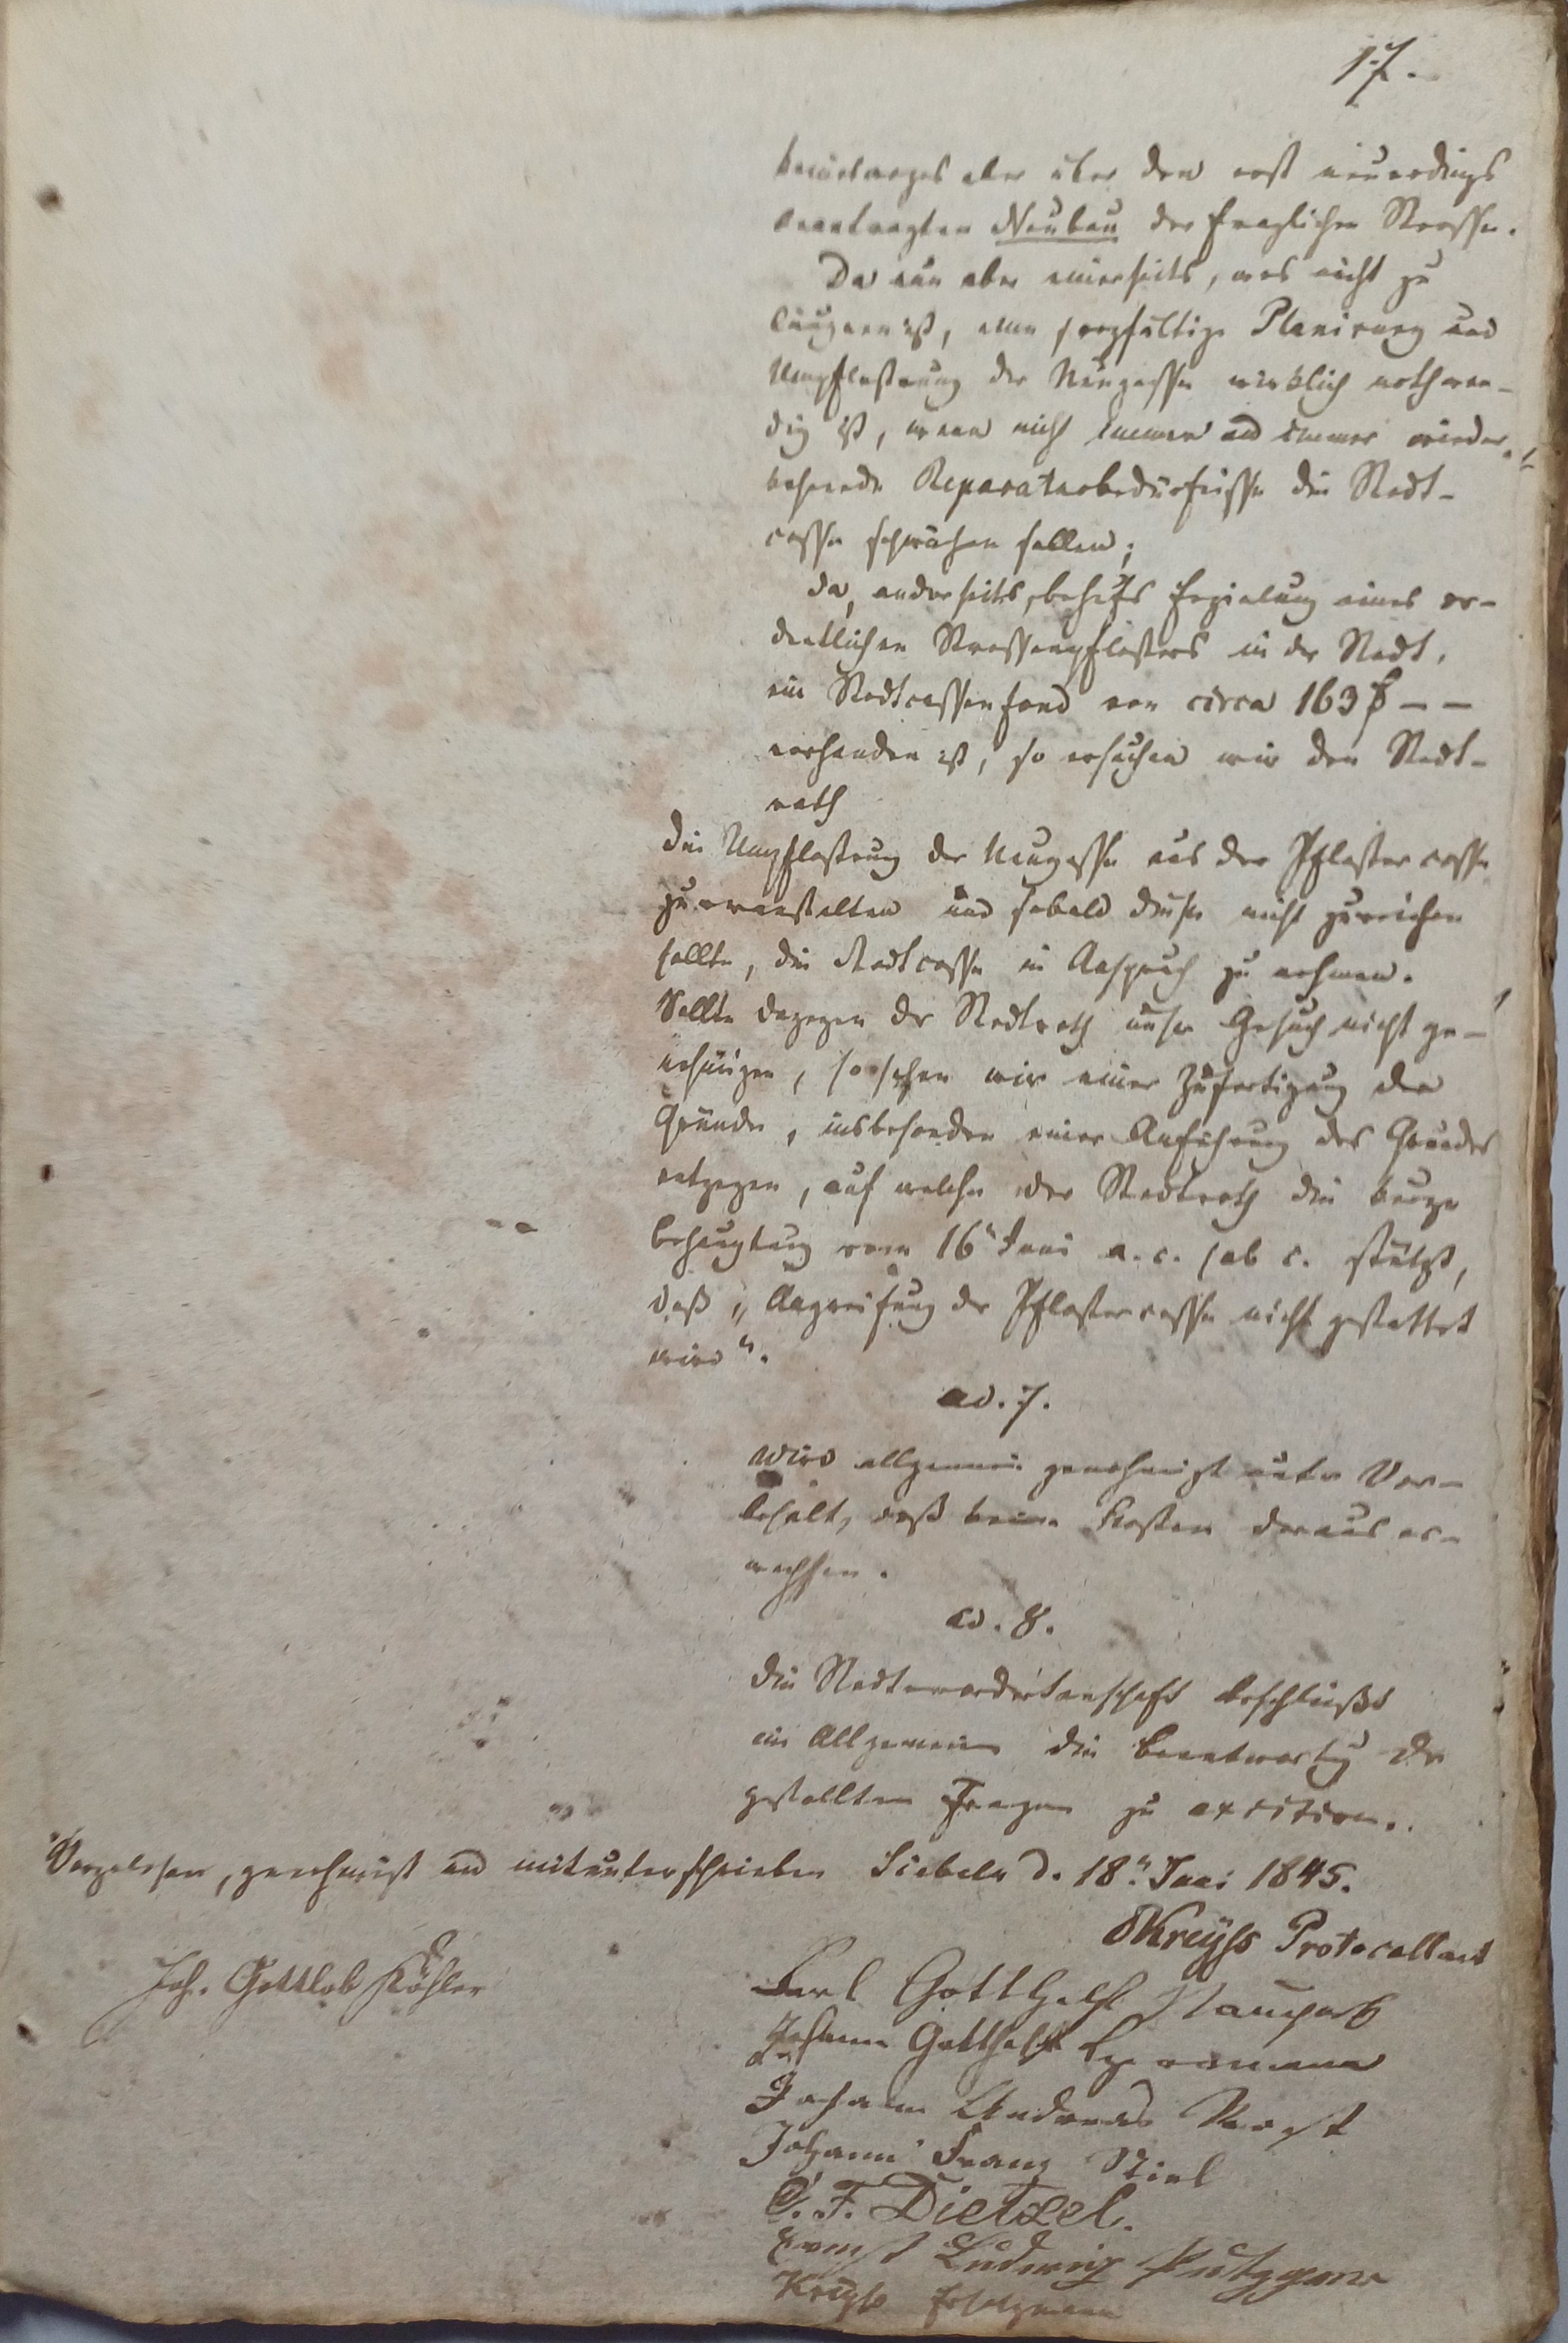 17.
aber über den erst neuerdings
beantragten Neubau der fraglichen Strasse.
Da nun aber einerseits, was nicht zu
läugnen ist, eine sorgfältige Planirung und
Umpflasterung der Neugasse wirklich nothwen-
dig ist, wenn nicht immer und immer wieder-
kehrende Reparaturbedürfnisse die Stadt-
casse schwächen sollen;
da, anderseits, behufs Erzielung eines or-
dentlichen Strassenpflasters in der Stadt,
ein Stadtcassenfond von circa 163 – –
vorhanden ist, so ersuchen wir den Stadt-
rath
die Umpflastrung der Neugasse aus der Pflastercasse
zu veranstalten und sobald diese nicht zureichen
sollte, die Stadtcasse in Anspruch zu nehmen.
Sollte dagegen der Stadtrath unser Gesuch nicht ge-
nehmigen, so sehen wir einer Zufertigung der
Gründe, insbesondere einer Anführung des Grundes
entgegen, auf welchen der Stadtrath die kurze
Behauptung vom 16n Juni a. c. sub c. stützt,
daß „Angreifung der Pflastercasse nicht gestattet
wird“.
ad. 7.
wird allgemein genehmigt unter Vor-
behalt, daß keine Kosten daraus er-
wachsen.
ad. 8.
Die Stadtverordnetenschaft beschließt
im Allgemeinen die Beantwortung der
gestellten Fragen zu
Vorgelesen, genehmigt und mitunterschrieben Siebeln d. 18n Juni 1845.
Kreyss Protocollant
Joh. Gottlob Köhler
Carl Gotthelf
Johann Gotthelf
Johann Andreas
Johann Franz Stiel
C. F. Dietzel.
Ernst Ludwig
Kreyss Ersatzmann